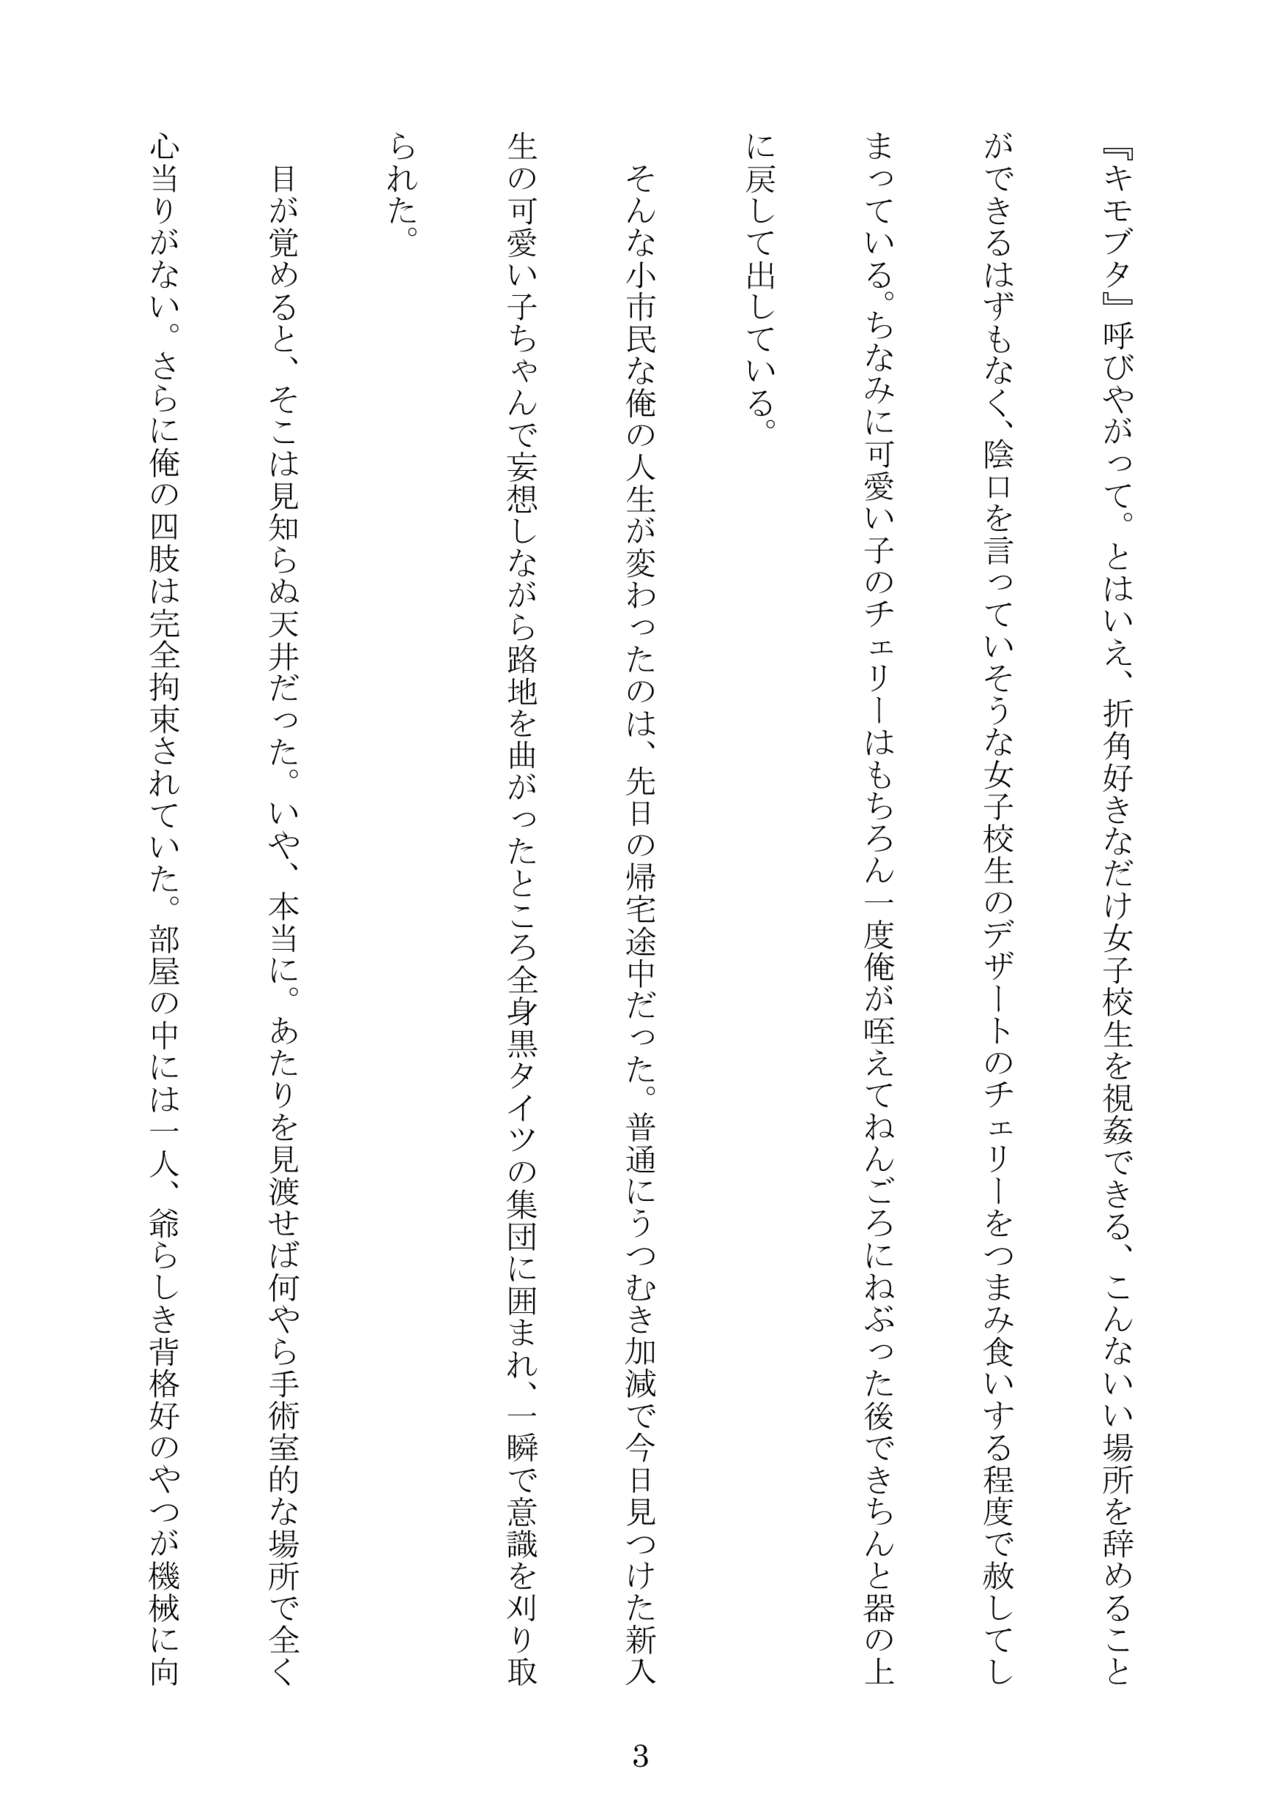 『キモブタ』呼びやがって。とはいえ、折角好きなだけ女子校生を視姦できる、こんないい場所を辞めること
ができるはずもなく、陰口を言っていそうな女子校生のデザートのチェリーをつまみ食いする程度で赦してし
まっている。ちなみに可愛い子のチェリーはもちろん一度俺が咥えてねんごろにねぶった後できちんと器の上
に戻して出している。
　そんな小市民な俺の人生が変わったのは、先日の帰宅途中だった。普通にうつむき加減で今日見つけた新入
生の可愛い子ちゃんで妄想しながら路地を曲がったところ全身黒タイツの集団に囲まれ、一瞬で意識を刈り取
られた。
　目が覚めると、そこは見知らぬ天井だった。いや、本当に。あたりを見渡せば何やら手術室的な場所で全く
心当りがない。さらに俺の四肢は完全拘束されていた。部屋の中には一人、爺らしき背格好のやつが機械に向
3